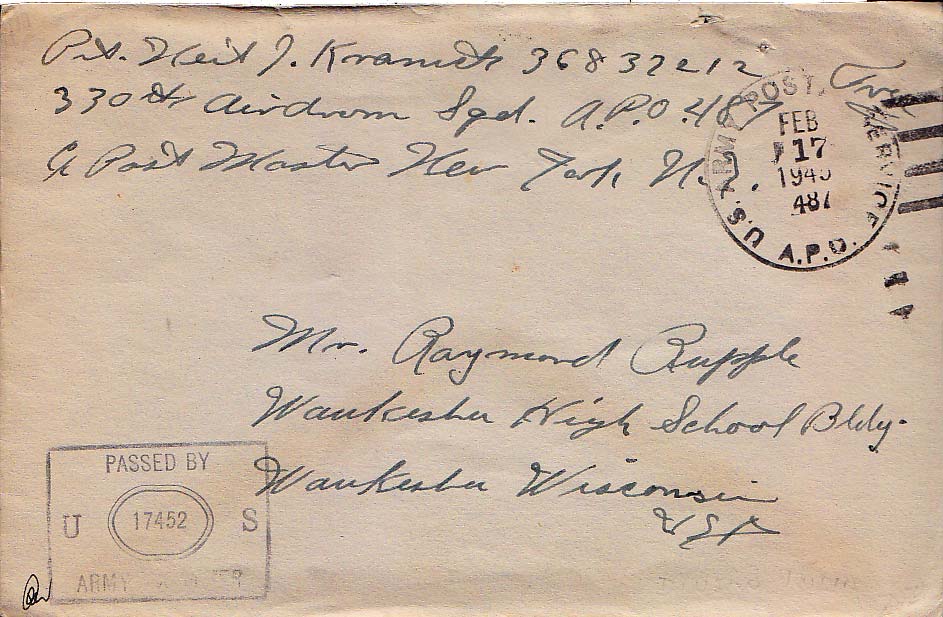 Pvt. Neil J. 36832212 Free
330th Airdrom Sqd. A.P.O. 487
c/o Post Master New York, N.Y.
U.S. ARMY POSTAL SERVICE A.P.O.
FEB
17
194
487
Mr. Raymond Rupple
Waukesha High School Bldg.
Waukesha Wisconsin
USA
PASSED BY
U 17452 S
ARMY EXAMINER